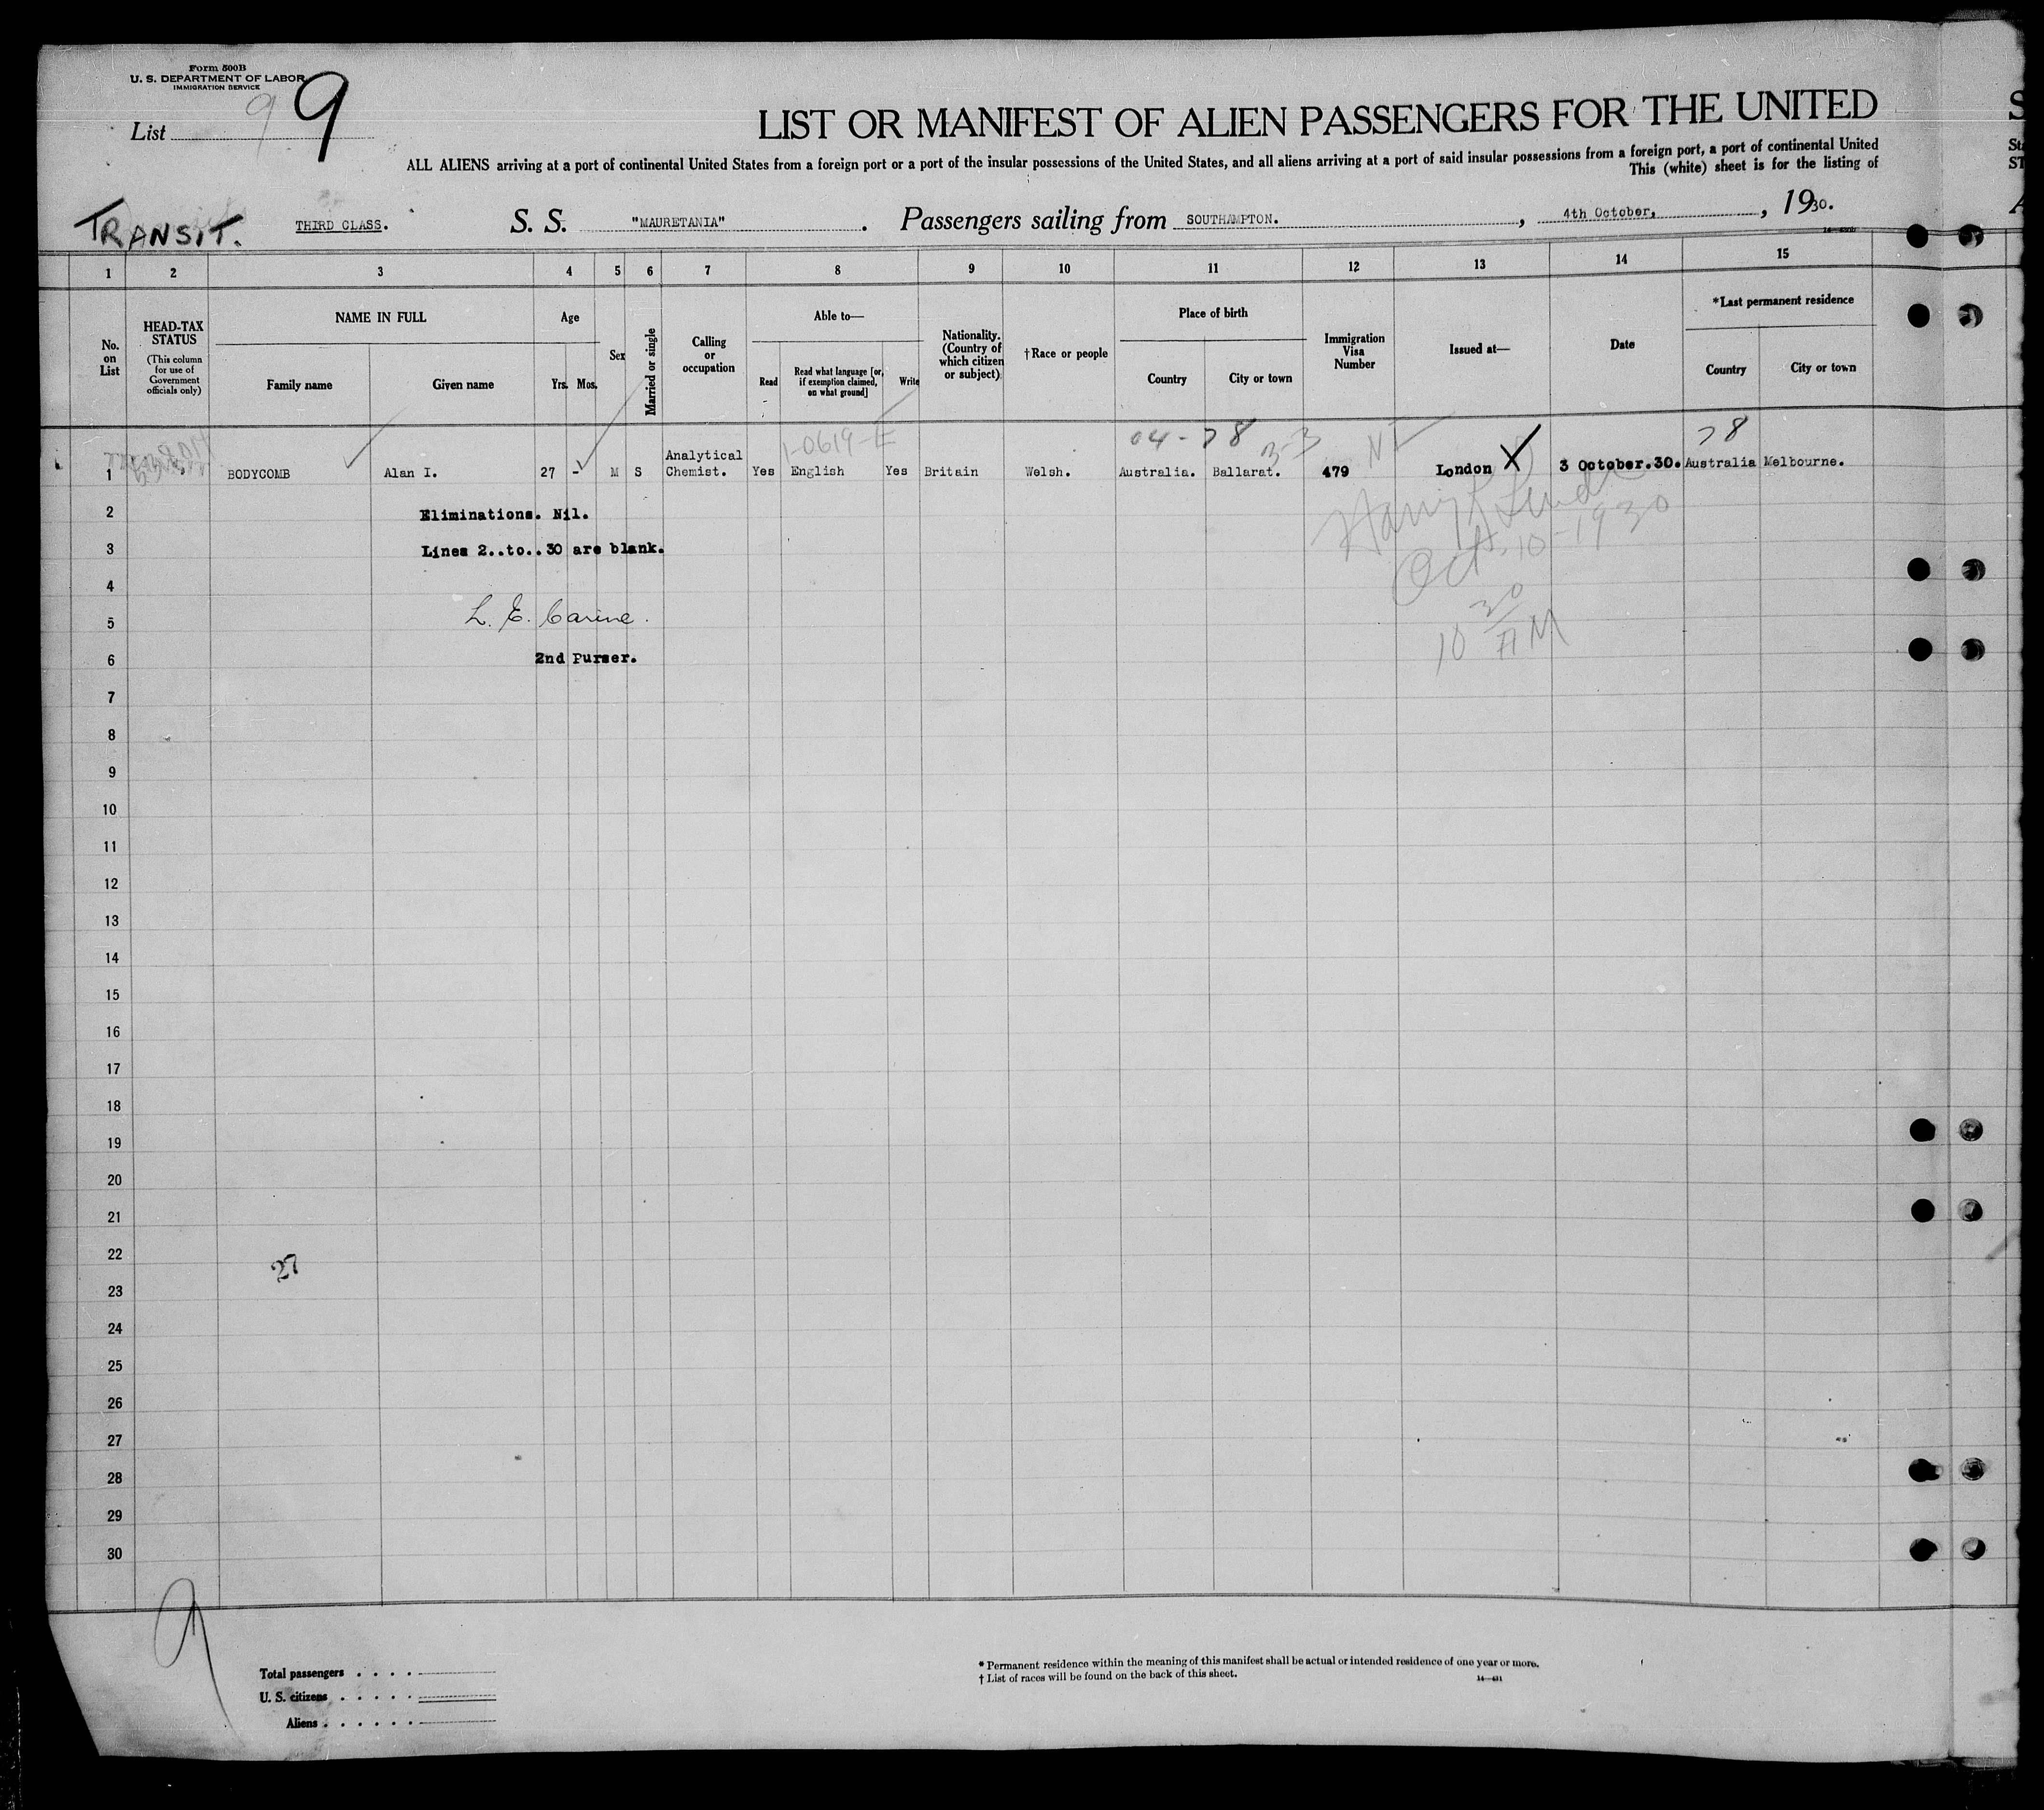 Form 500B
U. S. DEPARTMENT OF LABOR
IMMIGRATION SERVICE
List 9 9
LIST OR MANIFEST OF ALIEN PASSENGERS FOR THE UNITED
ALL ALIENS arriving at a port of continental United States from a foreign port or a port of the insular possessions of the United States, and all aliens arriving at a port of said insular possessions from a foreign port, a port of continental United
This (white) sheet is for the listing of
TRANSIT. THIRD CLASS. S. S. "MAURETANIA" . Passengers sailing from SOUTHAMPTON. , 4th October, , 1930.
1 2 3 4 5 6 7 8 9 10 11 12 13 14 15
No. on List
HEAD-TAX STATUS
(This column for use of Government officials only)
NAME IN FULL
Family name Given name
Age
Yrs. Mos.
Sex
Married or single
Calling or occupation
Able to—
Read Read what language [or, if exemption claimed, on what ground] Write
Nationality. (Country of which citizen or subject)
†Race or people
Place of birth
Country City or town
Immigration Visa Number
Issued at—
Date
*Last permanent residence
Country City or town
1-0619-E 04-78 3-3 78
1 BODYCOMB Alan I. 27 - M S Analytical Chemist. Yes English Yes Britain Welsh. Australia. Ballarat. 479 London X 3 October.30. Australia Melbourne.
2 Eliminations. Nil.
3 Lines 2..to..30 are blank.
Oct. 10-1930
4
5 L. E. Carine.
10 30 AM
6 2nd Purser.
7
8
9
10
11
12
13
14
15
16
17
18
19
20
21
22
27
23
24
25
26
27
28
29
30
9
Total passengers . . . .
U. S. citizens . . . . .
Aliens . . . . . .
* Permanent residence within the meaning of this manifest shall be actual or intended residence of one year or more.
† List of races will be found on the back of this sheet.